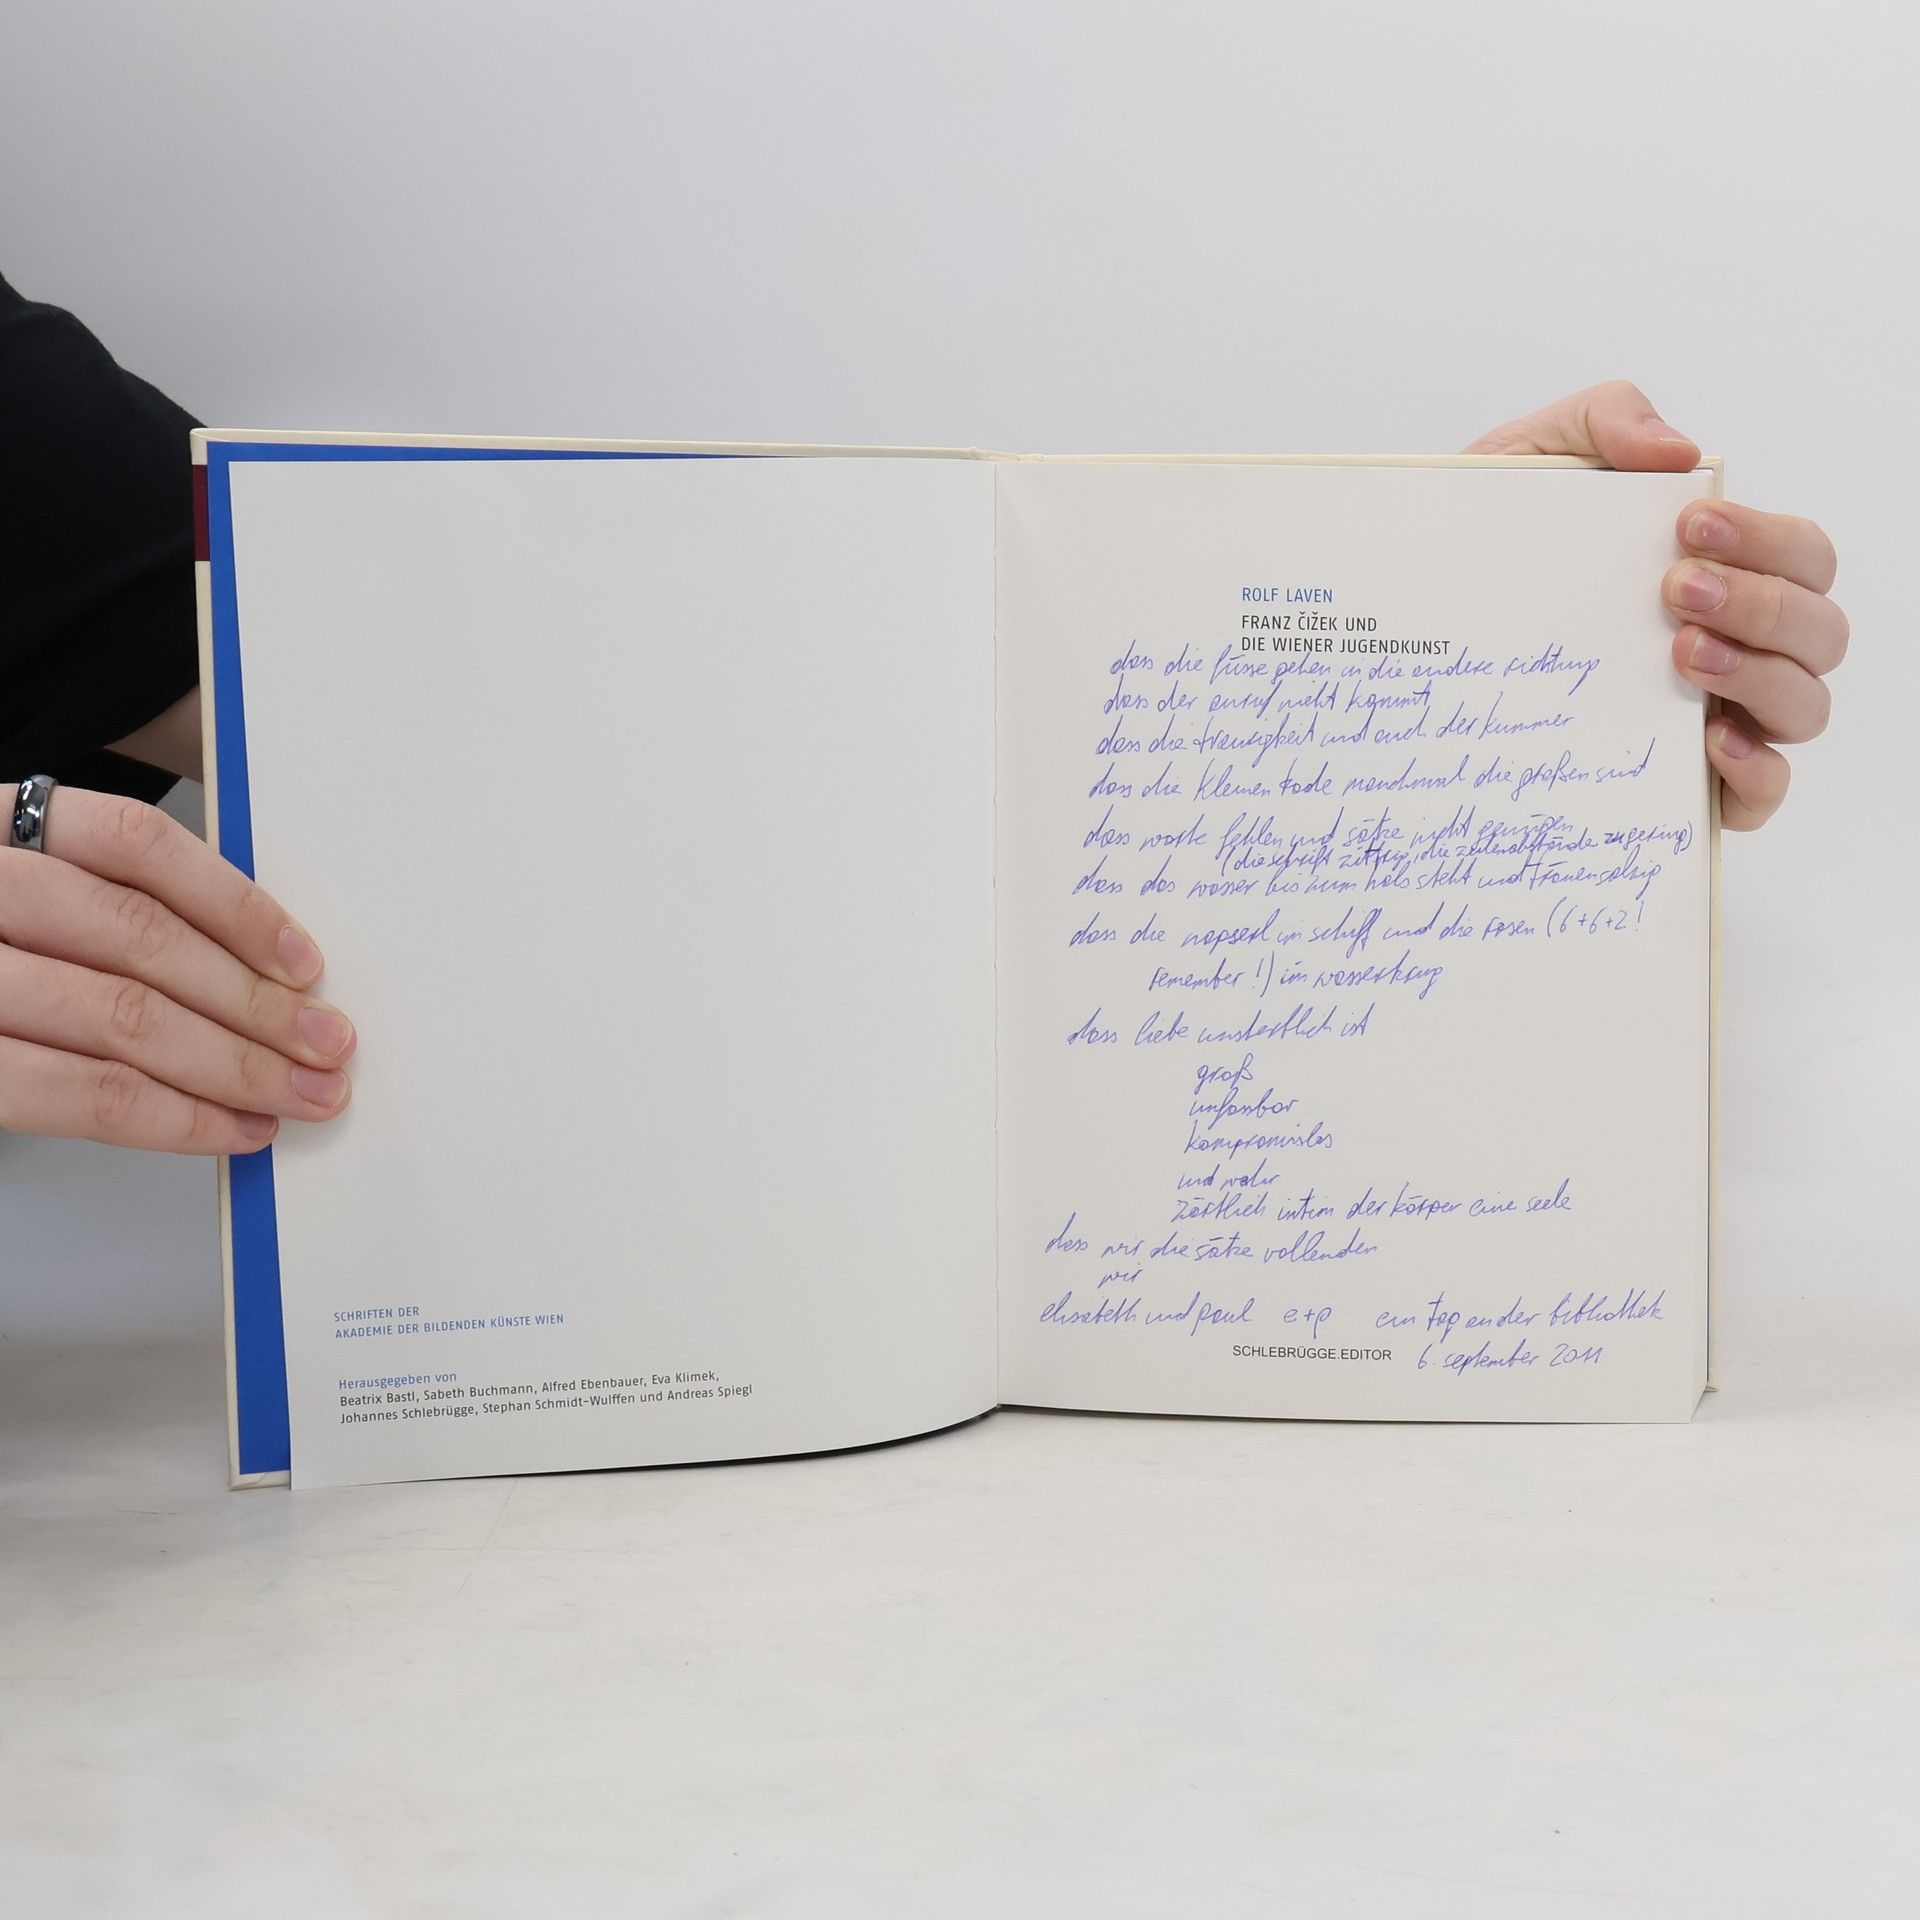 SCHRIFTEN DER
AKADEMIE DER BILDENDEN KÜNSTE WIEN
Herausgegeben von
Beatrix Bastl, Sabeth Buchmann, Alfred Ebenbauer, Eva Klimek,
Johannes Schlebrügge, Stephan Schmidt-Wulffen und Andreas Spiegl
ROLF LAVEN
FRANZ ČIŽEK UND
DIE WIENER JUGENDKUNST
dass die füsse gehen in die andere richtung
dass der anruf nicht kommt
dass die traurigkeit und auch der kummer
dass die kleinen tode manchmal die großen sind
dass worte fehlen und sätze nicht genügen
(die schrift zittrig, die zeilenabstände zu gering)
dass das wasser bis zum hals steht und tränensalzig
dass die im schiff und die rosen (6+6+2!
remember!) im wasserkrug
dass liebe unsterblich ist
groß
unfassbar
kompromislos
und wahr
zärtlich intim der körper eine seele
dass wir die sätze vollenden
wir
elisabeth und paul e+p ein tag an der bibliothek
SCHLEBRÜGGE.EDITOR 6. september 2011